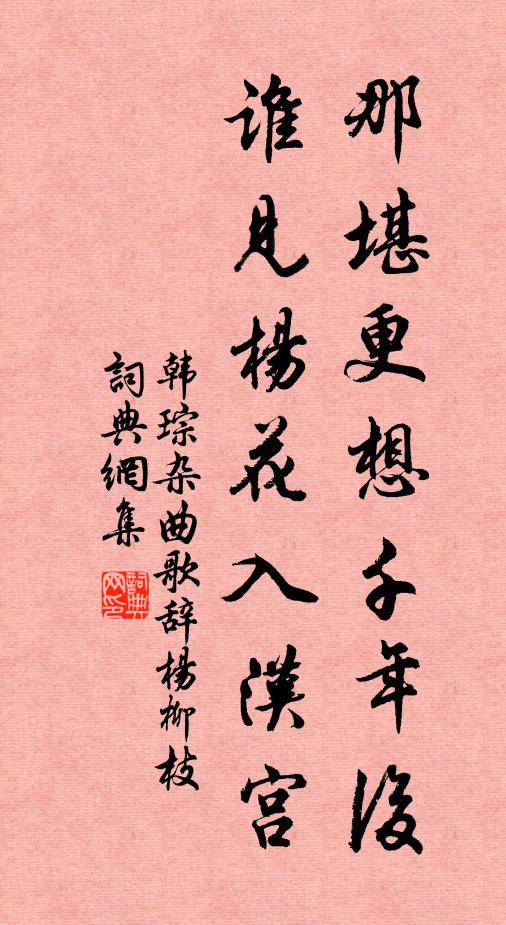 那堪更想千年後
誰見楊花入漢宮
韩琮杂曲歌辞楊柳枝
詞典網集
詞典
网印